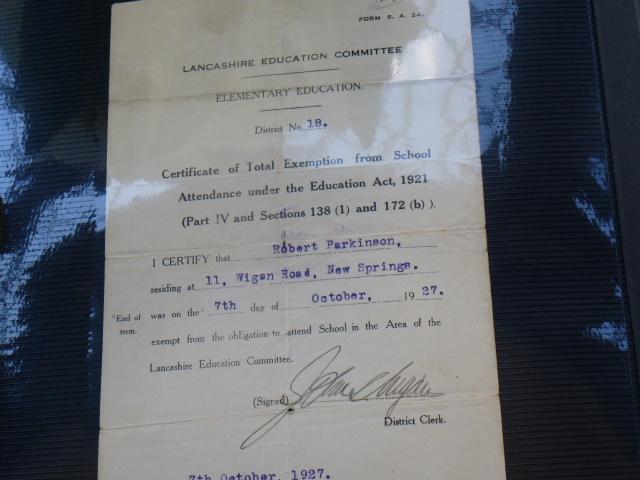 FORM S. A. 24.
LANCASHIRE EDUCATION COMMITTEE
ELEMENTARY EDUCATION.
District No. 18.
Certificate of Total Exemption from School
Attendance under the Education Act, 1921
(Part IV and Sections 138 (1) and 172 (b) ).
I CERTIFY that Robert Parkinson,
residing at 11, Wigan Road, New Springs.
*End of term.
was on the * 7th day of October, 1927.
exempt from the obligation to attend School in the Area of the
Lancashire Education Committee.
(Signed)
District Clerk.
7th October, 1927.